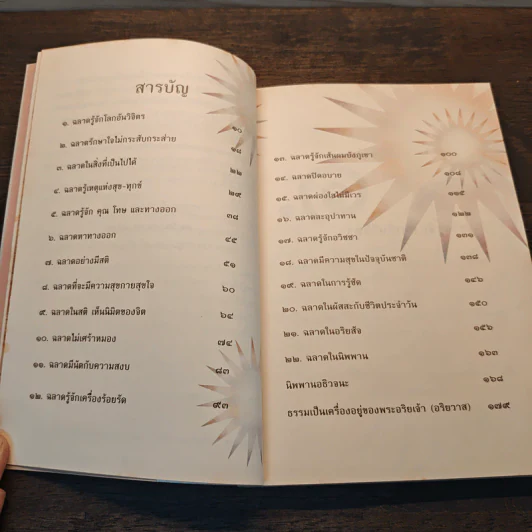 สารบัญ
๑. ฉลาดรู้จักโลกอันวิจิตร ๑๐
๒. ฉลาดรักษาใจไม่กระสับกระส่าย ๑๘
๓. ฉลาดในสิ่งที่เป็นไปได้ ๒๒
๔. ฉลาดรู้เหตุแห่งสุข-ทุกข์ ๒๙
๕. ฉลาดรู้จัก คุณ โทษ และทางออก ๓๘
๖. ฉลาดหาทางออก ๔๕
๗. ฉลาดอย่างมีสติ ๕๑
๘. ฉลาดที่จะมีความสุขกายสุขใจ ๖๐
๙. ฉลาดในสติ เห็นนิมิตของจิต ๖๔
๑๐. ฉลาดไม่เศร้าหมอง ๗๔
๑๑. ฉลาดมีนัดกับความสงบ ๘๓
๑๒. ฉลาดรู้จักเครื่องร้อยรัด ๙๓
๑๓. ฉลาดรู้จักเส้นผมบังภูเขา ๑๐๐
๑๔. ฉลาดปิดอบาย ๑๐๘
๑๕. ฉลาดผ่องใสไม่มีเวร ๑๑๕
๑๖. ฉลาดละอุปาทาน ๑๒๒
๑๗. ฉลาดรู้จักอวิชชา ๑๓๑
๑๘. ฉลาดมีความสุขในปัจจุบันชาติ ๑๓๘
๑๙. ฉลาดในการรู้ชัด ๑๔๖
๒๐. ฉลาดในผัสสะกับชีวิตประจำวัน ๑๕๐
๒๑. ฉลาดในอริยสัจ ๑๕๖
๒๒. ฉลาดในนิพพาน ๑๖๓
นิพพานอธิวจนะ ๑๖๘
ธรรมเป็นเครื่องอยู่ของพระอริยเจ้า (อริยวาส) ๑๗๙